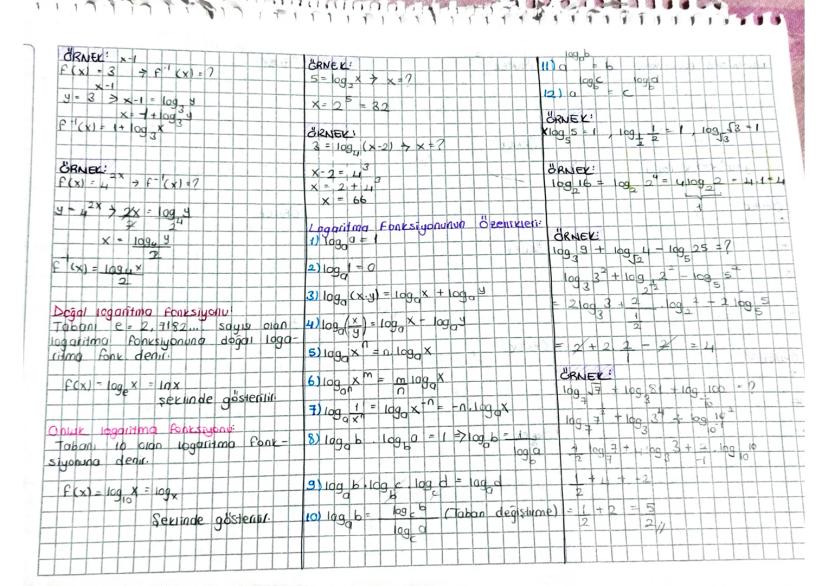 ÖRNEK:
f(x) = 3^(x-1) → f⁻¹(x) = ?
y = 3^(x-1) → x-1 = log₃y
x = 1 + log₃y
f⁻¹(x) = 1 + log₃x
ÖRNEK:
f(x) = 4^(2x) → f⁻¹(x) = ?
y = 4^(2x) → 2x/2 = log₄y/2
x = log₄y/2
f⁻¹(x) = log₄x/2
Doğal logaritma fonksiyonu:
Tabanı e = 2,7182... sayısı olan
logaritma fonksiyonuna doğal loga-
ritma fonk denir.
f(x) = logₑx = lnx
şeklinde gösterilir.
Onluk logaritma fonksiyonu:
Tabanı 10 olan logaritma fonk-
siyonuna denir.
f(x) = log₁₀x = logx
şeklinde gösterilir.
ÖRNEK:
5 = log₂x → x = ?
x = 2⁵ = 32
ÖRNEK:
3 = log₄(x-2) → x = ?
x-2 = 4³
x = 2 + 4³
x = 66
Logaritma Fonksiyonunun Özellikleri:
1) logₐa = 1
2) logₐ1 = 0
3) logₐ(x.y) = logₐx + logₐy
4) logₐ(x/y) = logₐx - logₐy
5) logₐxⁿ = n.logₐx
6) log_(aⁿ) x^m = m/n logₐx
7) logₐ 1/xⁿ = logₐx⁻ⁿ = -n.logₐx
8) logₐb . log_b a = 1 ⇒ logₐb = 1/log_b a
9) logₐb . log_b c . log_c d = logₐd
10) logₐb = log_c b/log_c a (Taban değiştirme)
11) a^(logₐb) = b
12) a^(log_b c) = c^(log_b a)
ÖRNEK:
log₅5 = 1, log_(1/2) 1/2 = 1, log_√3 √3 = 1
ÖRNEK:
log₂16 = log₂2⁴ = 4.log₂2 = 4.1 = 4
1
ÖRNEK:
log₃9 + log_√2 4 - log₅25 = ?
log₃3² + log_(2^(1/2)) 2² - log₅5²
= 2log₃3 + 2/(1/2) . log₂2 - 2log₅5
= 2 + 2.2/1 - 2 = 4
ÖRNEK:
log₇√7 + log₃81 + log_(1/10) 100 = ?
log₇7^(1/2) + log₃3⁴ + log_(10⁻¹) 10²
1/2 log₇7 + 4.log₃3 + 2/-1 . log₁₀10
1/2 + 4 + -2
= 1/2 + 2 = 5/2 //